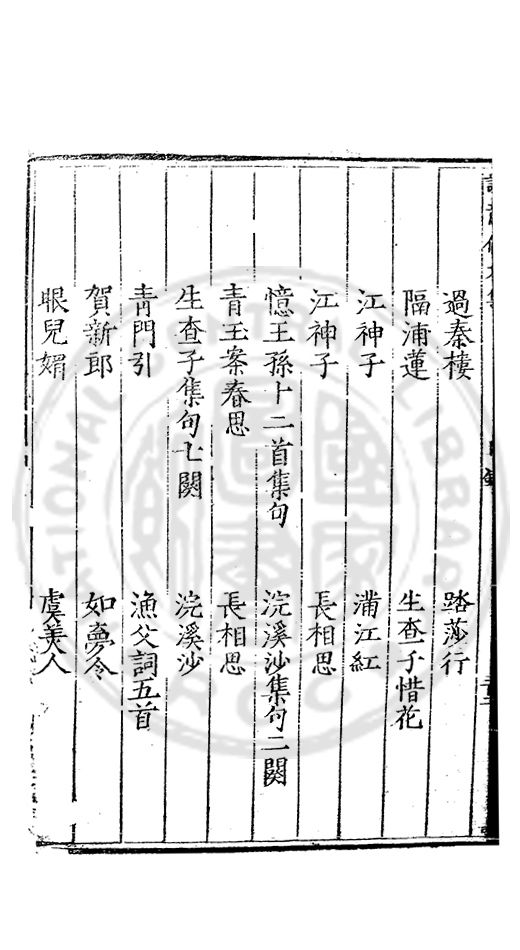 過秦樓　踏莎行
隔浦蓮　生查子惜花
江神子　滿江紅
江神子　長相思
憶王孫十二首集句　浣溪沙集句二闋
青玉案春思　長相思
生查子集句七闋　浣溪沙
青門引　漁父詞五首
賀新郎　如夢令
眼兒媚　虞美人